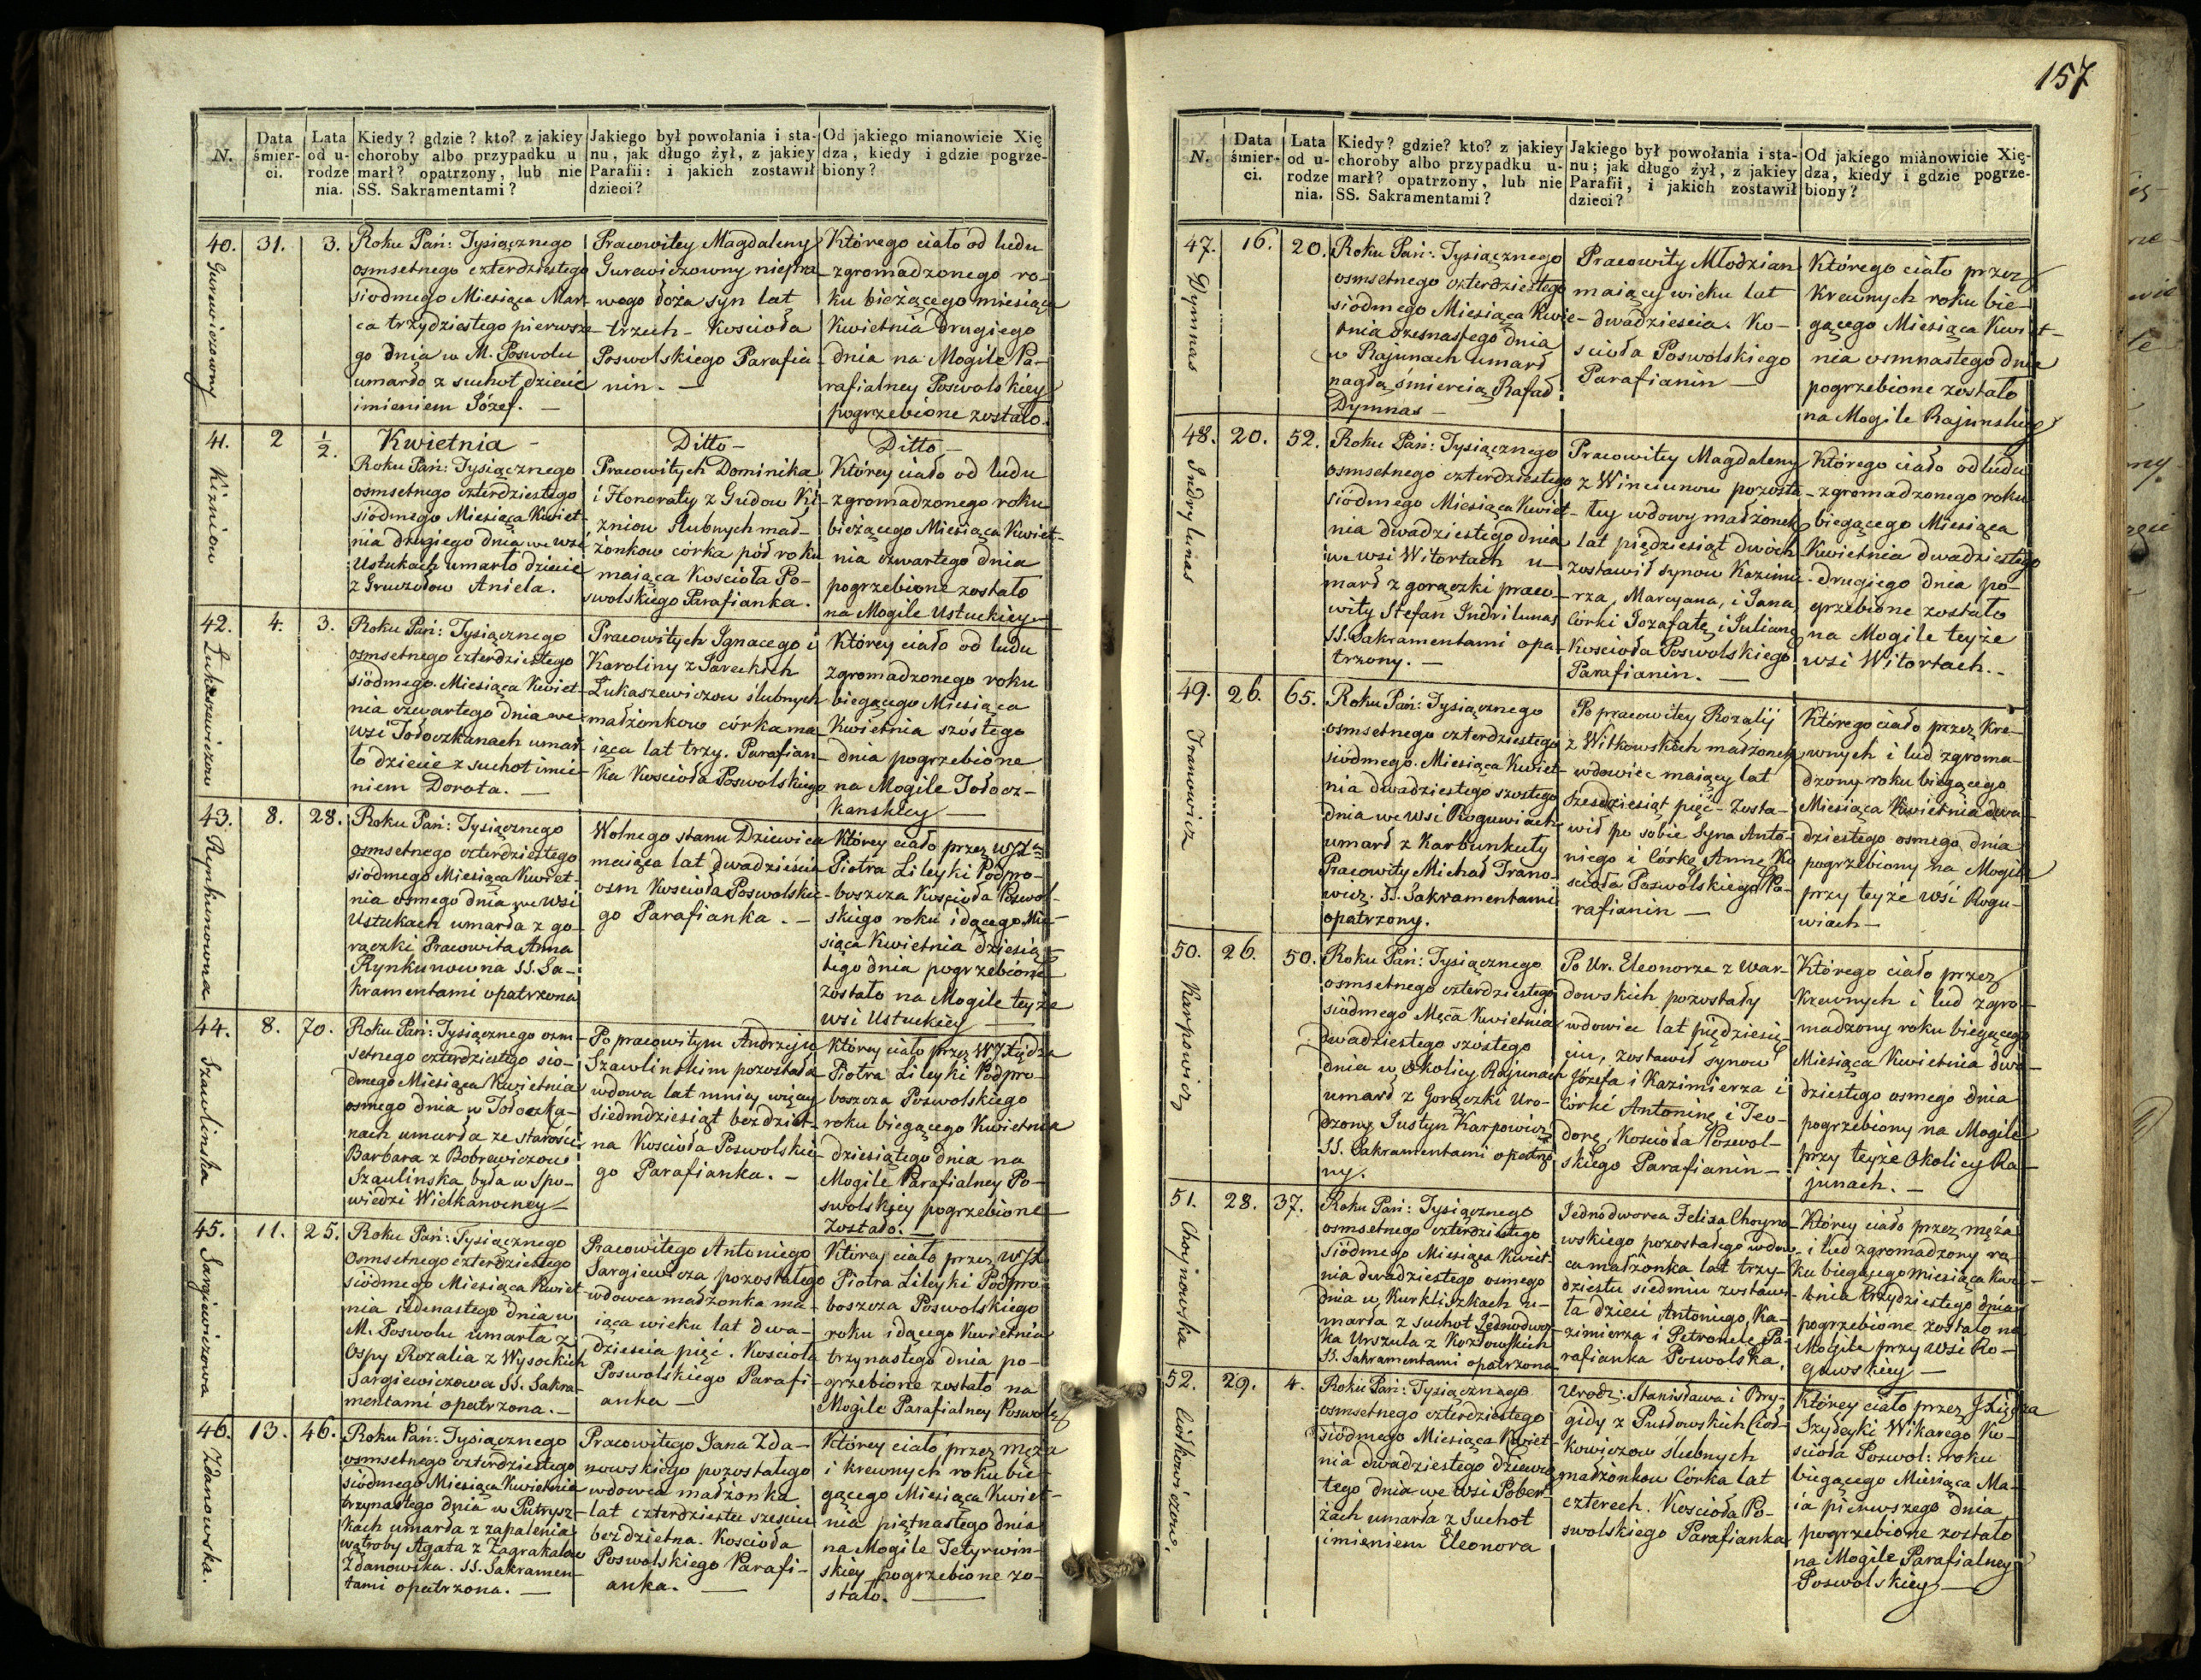 157
N.
Data śmierci.
Lata od urodzenia.
Kiedy? gdzie? kto? z jakiey
choroby albo przypadku u
marł? opatrzony, lub nie
SS. Sakramentami?
Jakiego był powołania i sta-
nu, jak długo żył, z jakiey
Parafii: i jakich zostawił
dzieci?
Od jakiego mianowicie Xię
dza, kiedy i gdzie pogrze-
biony?
40. Gurewiczowny
31.
3.
Roku Pań: Tysiącznego
osmsetnego czterdziestego
siodmego Miesiąca Mar-
ca trzydziestego pierwsze-
go dnia w M. Poswolu
umarło z suchot dziecie
imieniem Józef. —
Pracowitey Magdaleny
Gurewiczowny niepra-
wego łoża syn lat
trzech - Koscioła
Poswolskiego Parafia-
nin. —
Którego ciało od ludu
zgromadzonego ro-
ku bieżącego miesiąca
Kwietnia drugiego
dnia na Mogile Pa-
rafialney Poswolskiey
pogrzebione zostało.
41. Kizniow
2
½.
Kwietnia -
Roku Pań: Tysiącznego
osmsetnego czterdziestego
siódmego Miesiąca Kwiet-
nia drugiego dnia we wsi
Ustukach umarło dziecie
z Gruzołow Aniela.
Ditto -
Pracowitych Dominika
i Honoraty z Gudow Ki-
zniow Slubnych mał-
żonkow córka pół roku
maiąca Koscioła Po-
swolskiego Parafianka.
Ditto -
Którey ciało od ludu
zgromadzonego roku
bieżącego Miesiąca Kwiet-
nia czwartego dnia
pogrzebione zostało
na Mogile Ustuckiey. -
42. Łukaszewiczow
4.
3.
Roku Pań: Tysiącznego
osmsetnego czterdziestego
siódmego. Miesiąca Kwiet-
nia czwartego dnia we
wsi Tołoczkanach umar-
ło dziecie z suchot imie-
niem Dorota. —
Pracowitych Ignacego i
Karoliny z Jareckich
Łukaszewiczow ślubnych
małżonkow córka ma-
iąca lat trzy. Parafian-
ka Koscioła Poswolskiego
Którey ciało od ludu
zgromadzonego roku
biegącego Miesiąca
Kwietnia szóstego
dnia pogrzebione
na Mogile Tołocz-
kanskiey —
43. Rynkunowna
8.
28.
Roku Pań: Tysiącznego
osmsetnego czterdziestego
siodmego Miesiąca Kwiet-
nia osmego dnia we wsi
Ustukach umarła z go-
rączki Pracowita Anna
Rynkunowna SS. Sa-
kramentami opatrzona
Wolnego stanu Dziewica
maiąca lat dwadzieścia
osm Koscioła Poswolskie-
go Parafianka. -
Którey ciało przez WJX
Piotra Lileyki Podpro-
boszcza Koscioła Poswol-
skiego roku idącego Mie-
siąca Kwietnia dziesią-
tego dnia pogrzebione
zostało na Mogile teyże
wsi Ustuckiey —
44. Szawlinska
8.
70.
Roku Pań: Tysiącznego osm-
setnego czterdziestego sio-
dmego Miesiąca Kwietnia
osmego dnia w Tołoczka-
nach umarła ze starości
Barbara z Bobrewiczow
Szaulinska, była w Spo-
wiedzi Wielkanocney —
Po pracowitym Andrzeju
Szawlinskim pozostała
wdowa lat mniey więcey
siedmdziesiąt bezdziet-
na Koscioła Poswolskie-
go Parafianka. -
Którey ciało przez WJXiędza
Piotra Lileyki Podpro-
boszcza Poswolskiego
roku biegącego Kwietnia
dziesiątego dnia na
Mogile Parafialney Po-
swolskiey pogrzebione
zostało.
45. Sargiewiczowa
11.
25.
Roku Pań: Tysiącznego
Osmsetnego czterdziestego
siódmego Miesiąca Kwiet-
nia iedenastego dnia w
M. Poswolu umarła z
Ospy Rozalia z Wysockich
Sargiewiczowa SS. Sakra-
mentami opatrzona. —
Pracowitego Antoniego
Sargiewicza pozostałego
wdowca małżonka ma-
iąca wieku lat dwa-
dzieścia pięć. Koscioła
Poswolskiego Parafi-
anka —
Którey ciało przez WJX
Piotra Lileyki Podpro-
boszcza Poswolskiego
roku idącego Kwietnia
trzynastego dnia po-
grzebione zostało na
Mogile Parafialney Poswols
46. Zdanowska.
13.
46.
Roku Pań: Tysiącznego
osmsetnego czterdziestego
siódmego Miesiąca Kwietnia
trzynastego dnia w Putrysz-
kach umarła z zapalenia
wątroby Agata z Zagrakalow
Zdanowska. SS. Sakramen-
tami opatrzona. —
Pracowitego Jana Zda-
nowskiego pozostałego
wdowca małżonka
lat czterdziestu sześciu
bezdzietna. Koscioła
Poswolskiego Parafi-
anka. —
Którey ciało przez męża
i krewnych roku bie-
gącego Miesiąca Kwiet-
nia piętnastego dnia
na Mogile Jetyrwin-
skiey pogrzebione zo-
stało. —
N.
Data śmierci.
Lata od urodzenia.
Kiedy? gdzie? kto? z jakiey
choroby albo przypadku u-
marł? opatrzony, lub nie
SS. Sakramentami?
Jakiego był powołania i sta-
nu; jak długo żył, z jakiey
Parafii, i jakich zostawił
dzieci?
Od jakiego mianowicie Xię-
dza, kiedy i gdzie pogrze-
biony?
47. Dymnas
16.
20.
Roku Pań: Tysiącznego
osmsetnego czterdziestego
siódmego Miesiąca Kwie-
tnia szesnastego dnia
w Rajunach umarł
nagłą śmiercią Rafał
Dymnas —
Pracowity Młodzian
maiący wieku lat
dwadziescia. Ko-
scioła Poswolskiego
Parafianin —
Którego ciało przez
Krewnych roku bie-
gącego Miesiąca Kwiet-
nia osmnastego dnia
pogrzebione zostało
na Mogile Rajunskiey
48. Indrylunas
20.
52.
Roku Pań: Tysiącznego
osmsetnego czterdziestego
siódmego Miesiąca Kwiet-
nia dwadziestego dnia
we wsi Witortach u-
marł z gorączki praco-
wity Stefan Indrilunas
SS. Sakramentami opa-
trzony. —
Pracowitey Magdaleny
z Winciunow pozosta-
łey wdowy małżonek
lat piędziesiąt dwóch
zostawił synow Kazimi-
rza, Marcyana, i Jana,
Córki Jozafatę, i Julianę
Koscioła Poswolskiego
Parafianin. —
Którego ciało od ludu
zgromadzonego roku
biegącego Miesiąca
Kwietnia dwadziestego
drugiego dnia po-
grzebione zostało
na Mogile teyże
wsi Witortach. -
49. Iranowicz
26.
65.
Roku Pań: Tysiącznego
osmsetnego czterdziestego
siódmego. Miesiąca Kwiet-
nia dwadziestego szostego
dnia we wsi Roguwiach
umarł z Karbunkuły
Pracowity Michał Irano-
wicz. SS. Sakramentami
opatrzony.
Po pracowitey Rozalij
z Witkowskich małżonek
wdowiec maiący lat
szesdziesiąt pięć - Zosta-
wił po sobie Syna Anto-
niego i Córkę Annę Ko
scioła Poswolskiego Pa-
rafianin —
Którego ciało przez Kre-
wnych i lud zgroma-
dzony roku biegącego
Miesiąca Kwietnia dwa-
dziestego osmego dnia
pogrzebiony na Mogile
przy teyże wsi Rogu-
wiach —
50. Karpowicz
26.
50.
Roku Pań: Tysiącznego
osmsetnego czterdziestego
siódmego Męca Kwietnia
dwadziestego szostego
dnia w okolicy Rajunach
umarł z Gorączki Uro-
dzony Justyn Karpowicz
SS. Sakramentami opatrzo
ny.
Po Ur. Eleonorze z War-
dowskich pozostały
wdowiec lat piędziesię-
ciu, zostawił synow
Józefa i Kazimierza i
Córki Antoninę i Teo-
dorę, Koscioła Poswol-
skiego Parafianin —
Którego ciało przez
Krewnych i lud zgro-
madzony roku biegącego
Miesiąca Kwietnia dwa-
dziestego osmego dnia
pogrzebiony na Mogile
przy teyże Okolicy Ra-
junach. —
51. Choynowska
28.
37.
Roku Pań: Tysiącznego
osmsetnego czterdziestego
Siódmego Miesiąca Kwiet-
nia dwadziestego osmego
dnia w Kurkliszkach u-
marła z suchot Jednodwor-
ka Urszula z Kozłowskich
SS. Sakramentami opatrzona
Jednodworca Felixa Choyno-
wskiego pozostałego wdow-
ca małżonka lat trzy-
dziestu siedmiu zostawi-
ła dzieci Antoniego, Ka-
zimierza i Petronelę, Pa-
rafianka Poswolska.
Którey ciało przez męża
i lud zgromadzony ro-
ku biegącego Miesiąca Kwie-
tnia trzydziestego dnia
pogrzebione zostało na
Mogile przy wsi Ro-
guwskiey —
52. Ciołkowiczow.
29.
4.
Roku Pań: Tysiącznego
osmsetnego czterdziestego
siódmego Miesiąca Kwiet-
nia dwadziestego dziewią
tego dnia we wsi Pober-
żach umarła z Suchot
imieniem Eleonora
Urodz: Stanisława i Bry-
gidy z Pusłowskich Cioł-
kowiczow ślubnych
małżonkow Córka lat
czterech. Koscioła Po-
swolskiego Parafianka
Którey ciało przez JXiędza
Szydeyki Wikarego Ko-
scioła Poswol: roku
biegącego Miesiąca Ma-
ia pierwszego dnia
pogrzebione zostało
na Mogile Parafialney
Poswolskiey —